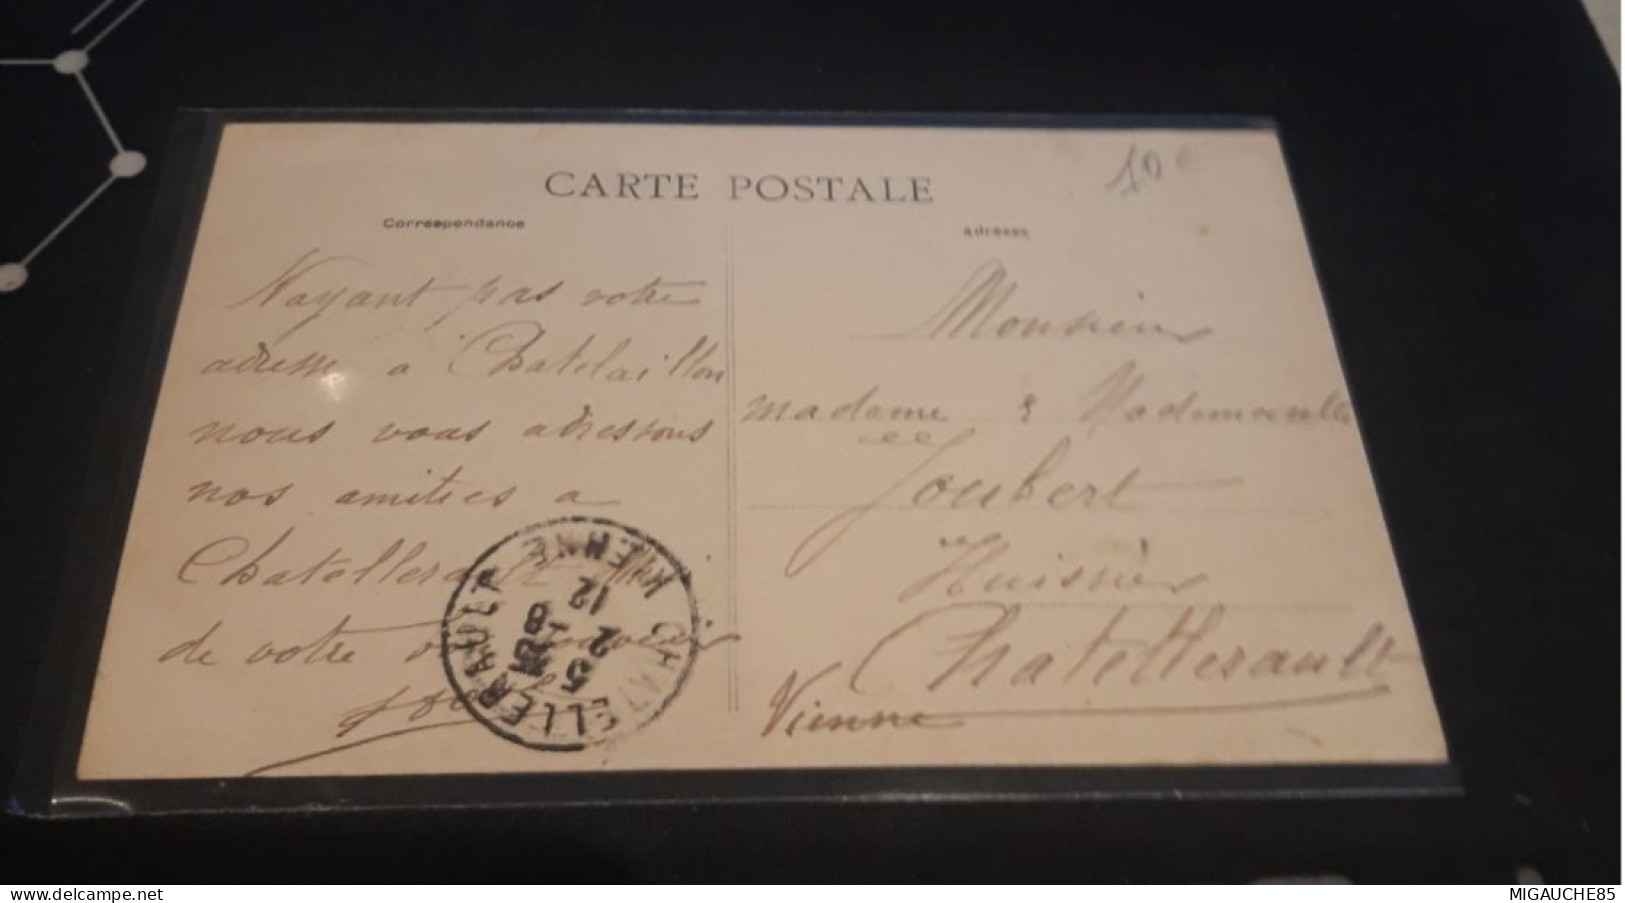 CARTE POSTALE
10 €
Correspondance
Adresse
Nayant pas votre
adresse a Chatelaillon
nous vous adressons
nos amitiés a
Chatellerault
de votre souvenir
Monsieur
madame & Mademoiselle
Joubert
Huissier
Chatellerault
Vienne
CHATELLERAULT VIENNE
12
2
8
05
www.delcampe.net
MIGAUCHE85